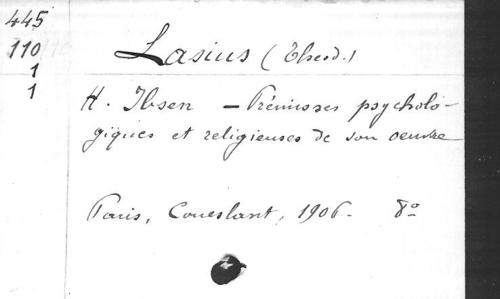 445
110
1
1
Lasius (Theod.)
H. Ibsen — Prémisses psycholo-
giques et religieuses de son oeuvre
Paris, Coueslant, 1906 - 8º